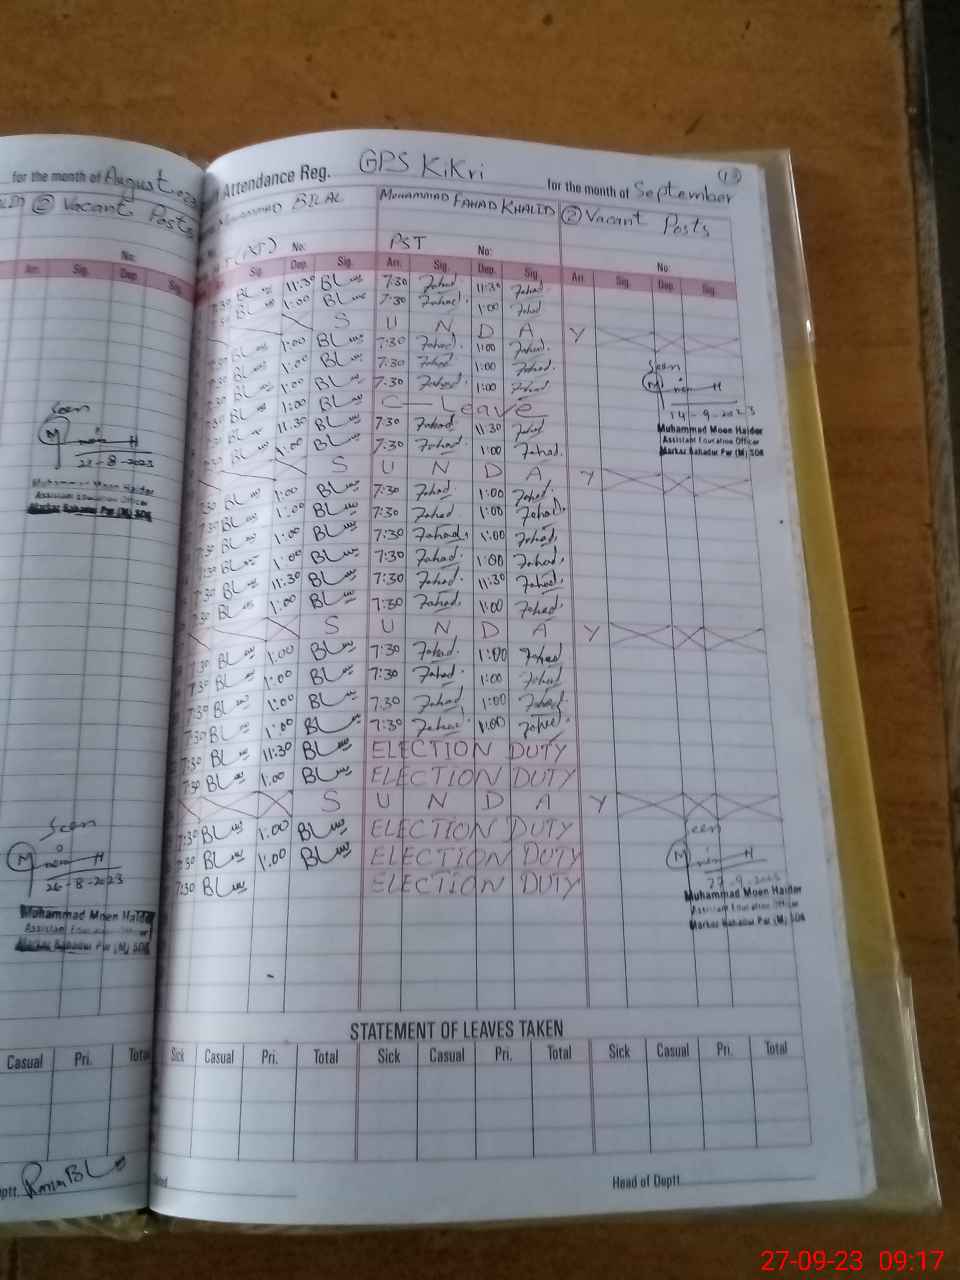 for the month of August 2023
② Vacant Posts
No:
Arr. Sig. Dep. Sig.
Seen
22-8-2023
Muhammad Moen Haider
Assistant Education Officer
Markaz Bahadur Pur (M) SDK
Seen
26-8-2023
Muhammad Moen Haider
Assistant Education Officer
Markaz Bahadur Pur (M) SDK
Casual Pri. Total
Attendance Reg. GPS KiKri for the month of September
13
Muhammad BILAL Muhammad FAHAD KHALID ② Vacant Posts
No: PST No: No:
Sig. Dep. Sig. Arr. Sig. Dep. Sig. Arr. Sig. Dep. Sig.
7:30 11:30 7:30 Fahad 11:30 Fahad
7:30 1:00 7:30 Fahad 1:00 Fahad
S U N D A Y
7:30 1:00 7:30 Fahad 1:00 Fahad
7:30 1:00 7:30 Fahad 1:00 Fahad
7:30 1:00 7:30 Fahad 1:00 Fahad
7:30 1:00 C-Leave
7:30 11:30 7:30 Fahad 11:30 Fahad
7:30 1:00 7:30 Fahad 1:00 Fahad
S U N D A Y
7:30 1:00 7:30 Fahad 1:00 Fahad
7:30 1:00 7:30 Fahad 1:00 Fahad
7:30 1:00 7:30 Fahad 1:00 Fahad
7:30 1:00 7:30 Fahad 1:00 Fahad
7:30 11:30 7:30 Fahad 11:30 Fahad
7:30 1:00 7:30 Fahad 1:00 Fahad
S U N D A Y
7:30 1:00 7:30 Fahad 1:00 Fahad
7:30 1:00 7:30 Fahad 1:00 Fahad
7:30 1:00 7:30 Fahad 1:00 Fahad
7:30 1:00 7:30 Fahad 1:00 Fahad
7:30 11:30 ELECTION DUTY
7:30 1:00 ELECTION DUTY
S U N D A Y
7:30 1:00 ELECTION DUTY
7:30 1:00 ELECTION DUTY
7:30 ELECTION DUTY
Seen
14-9-2023
Muhammad Moen Haider
Assistant Education Officer
Markaz Bahadur Pur (M) SDK
Seen
27-9-2023
Muhammad Moen Haider
Assistant Education Officer
Markaz Bahadur Pur (M) SDK
STATEMENT OF LEAVES TAKEN
Sick Casual Pri. Total Sick Casual Pri. Total Sick Casual Pri. Total
Head of Deptt
27-09-23 09:17